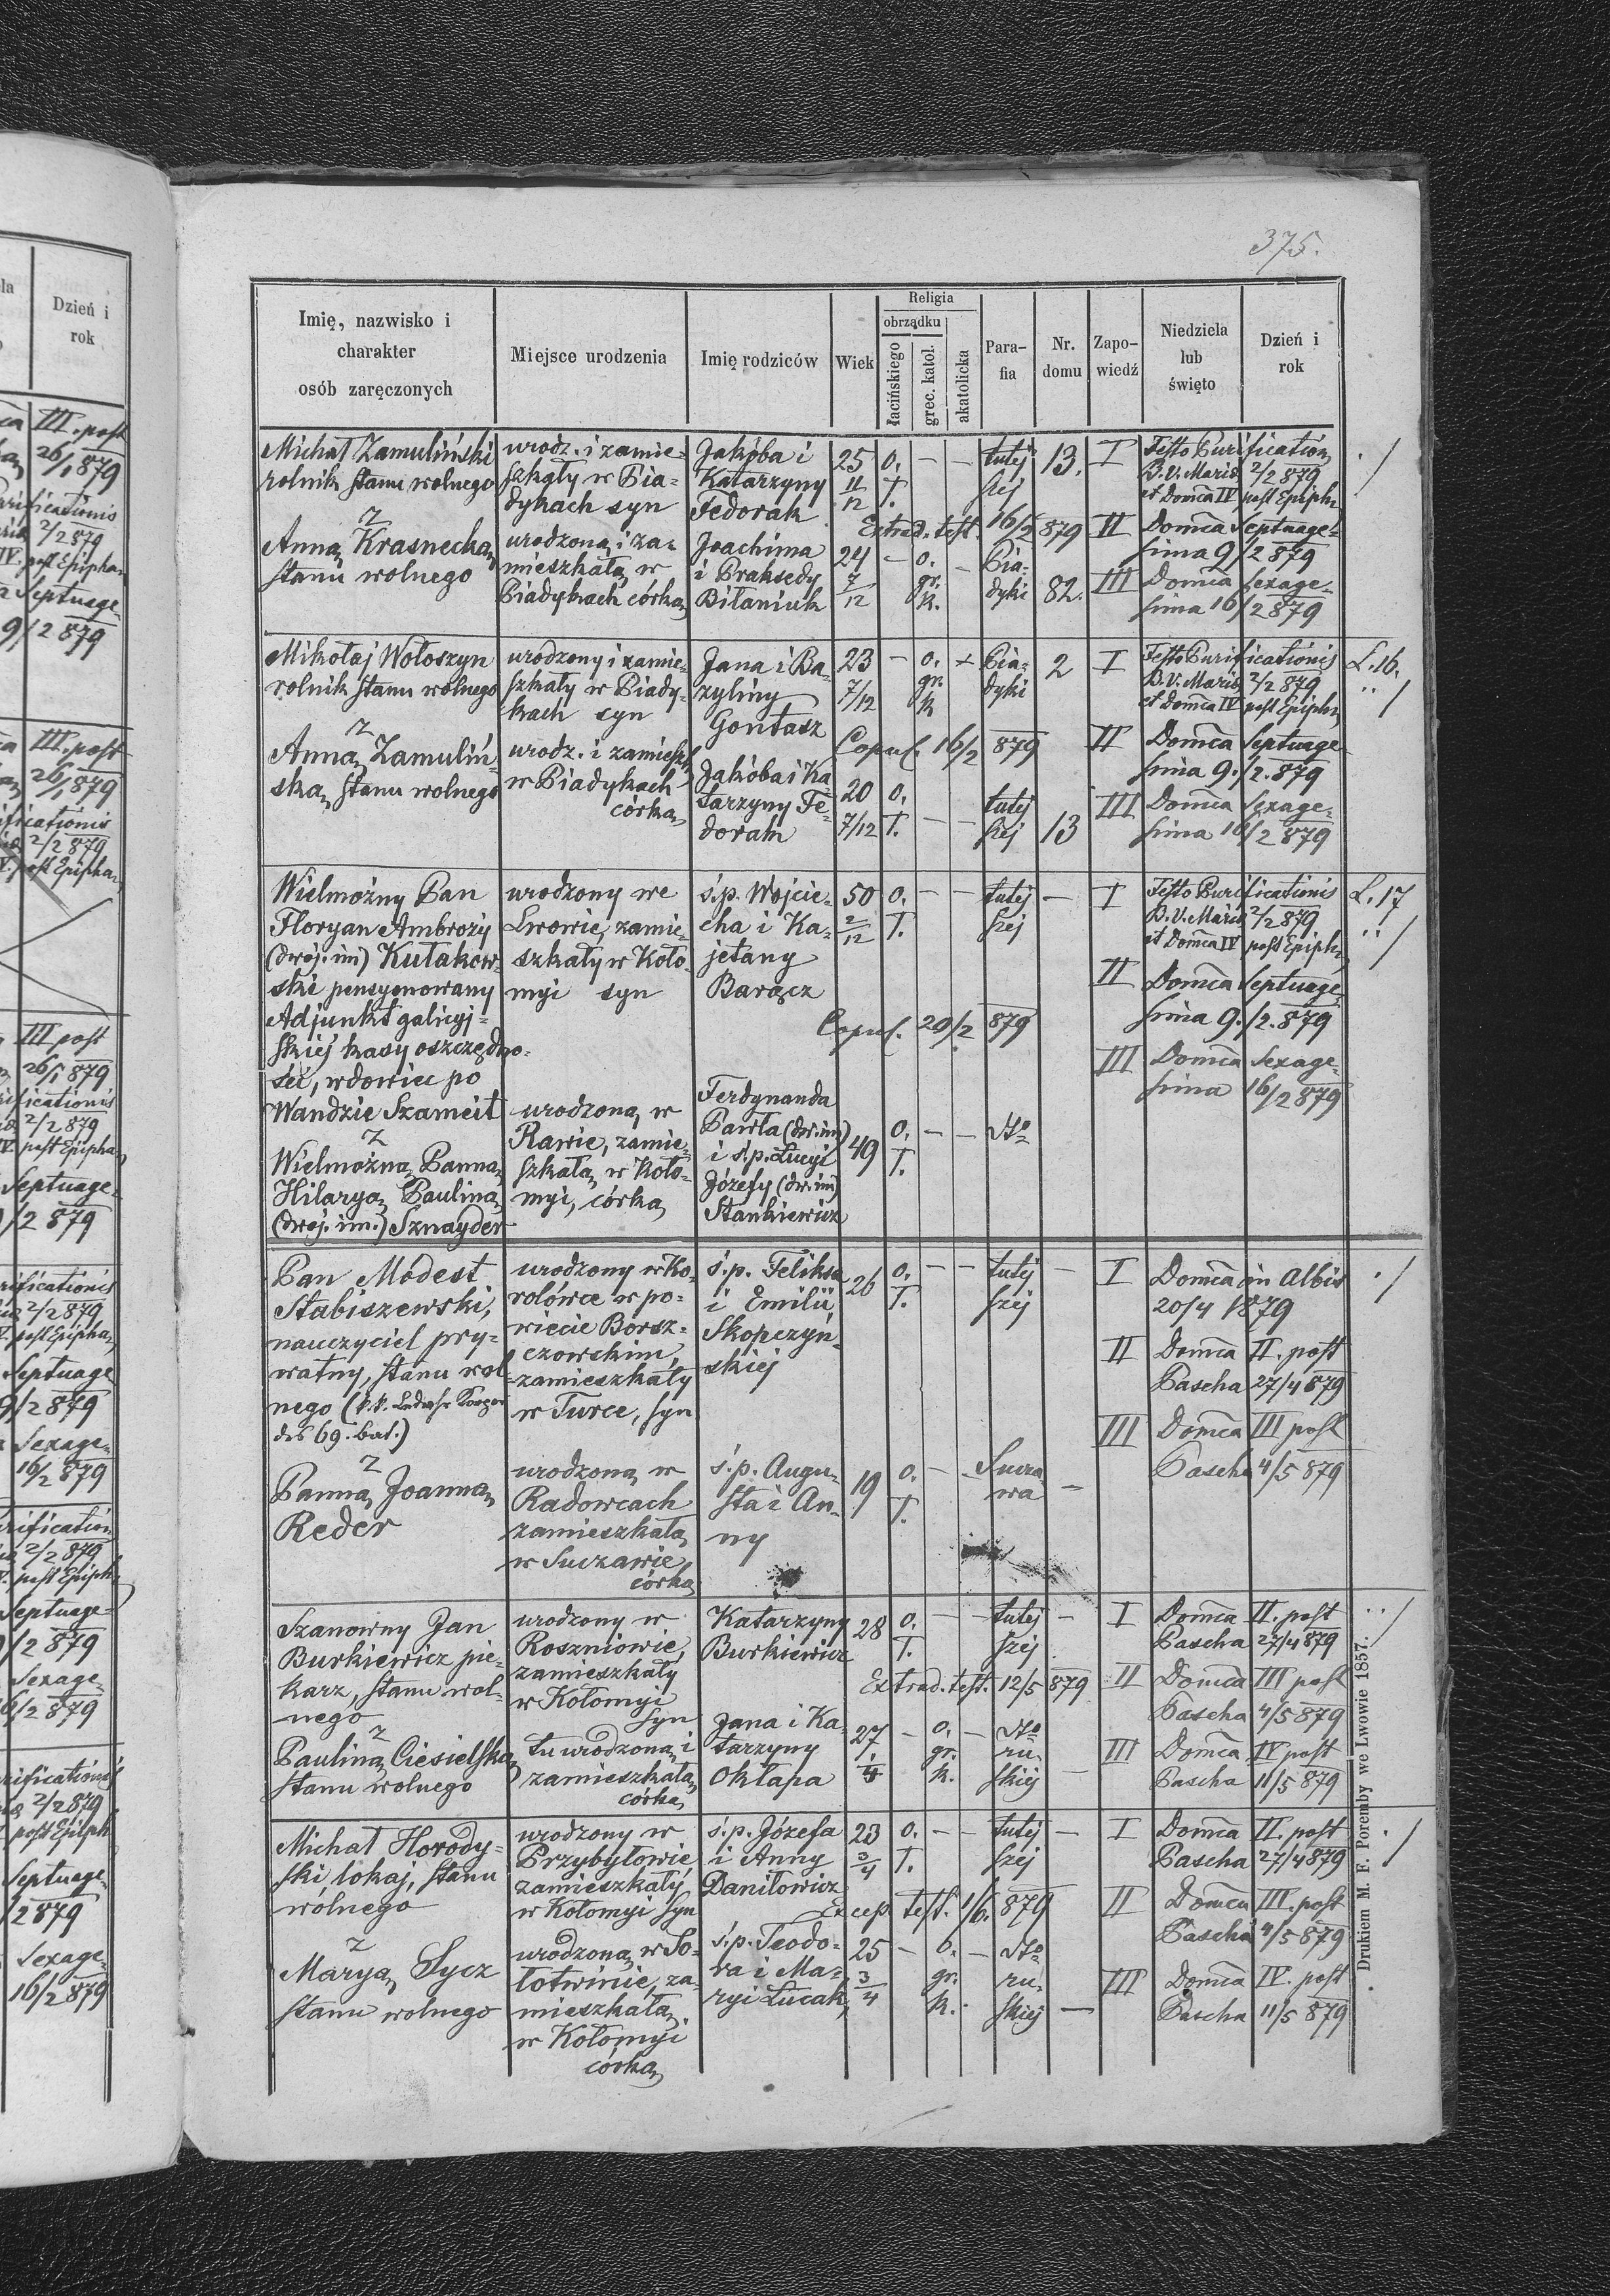 375.
Imię, nazwisko i charakter osób zaręczonych
Miejsce urodzenia
Imię rodziców
Wiek
Religia
obrządku
łacińskiego
grec. katol.
akatolicka
Para-
fia
Nr.
domu
Zapo-
wiedź
Niedziela
lub
święto
Dzień i
rok
Michał Zamuliński
rolnik stanu wolnego
z
Anną Krasnecką
stanu wolnego
urodz. i zamie-
szkały w Pia-
dykach syn
urodzoną i za-
mieszkałą w
Piadykach córką
Jakóba i
Katarzyny
Fedorak
Joachima
i Praksedy
Biłaniuk
25 o. — — tutej 13.
11/12 ł. szej
Extrad. test. 16/2 879
24 — o. — Pia-
7/12 gr. dyki 82.
k.
I Festo Purification
B. V. Mariæ 2/2 879
et Domca IV post Epiph.
II Domca Septuage-
sima 9/2 879
III Domca Sexage-
sima 16/2 879
Mikołaj Wołoszyn
rolnik stanu wolnego
z
Anną Zamuliń-
ską, stanu wolnego
urodzony i zamie-
szkały w Piady-
kach syn
urodz. i zamieszk.
w Piadykach
córką
Jana i Ba
zyliny
Gontasz
Jakóba i Ka
tarzyny Fe-
dorak
23 — o. + Pia- 2
7/12 gr. dyki
k
Copul. 16/2 879
20 o. tutej
7/12 ł. — — szej 13
I Festo Purificationis L. 16.
B. V. Mariæ 2/2 879
et Domca IV post Epiph.
II Domca Septuage
sima 9./2. 879
III Domca Sexage-
sima 16/2 879
Wielmożny Pan
Floryan Ambroży
(dwoj. im) Kułakow-
ski pensyonowany
Adjunkt galicyj-
skiej kasy oszczędno-
ści, wdowiec po
Wandzie Szameit
z
Wielmożną Panną
Hilaryą Pauliną
(dwoj. im.) Sznayder
urodzony we
Lwowie, zamie-
szkały w Koło-
myi syn
urodzoną w
Rawie, zamie-
szkałą w Koło-
myi, córką
ś.p. Wojcie-
cha i Ka-
jetany
Barącz
Ferdynanda
Pawła (dw. im)
i ś.p. Łucyi
Józefy (dw. im)
Stankiewicz
50 o. — — tutej —
2/12 ł. szej
Copul. 20/2 879
49 o. — — dto
ł.
I Festo Purificationis L. 17
B. V. Mariæ 2/2 879
et Domca IV post Epiph.
II Domca Septuage
sima 9./2. 879
III Domca Sexage-
sima 16/2 879
Pan Modest
Stabiszewski,
nauczyciel pry-
watny, stanu wol-
nego (k. k.
des 69. bat.)
z
Panną Joanną
Reder
urodzony w Ko-
rolówce w po-
wiecie Borsz-
czowskim,
zamieszkały
w Turce, syn
urodzoną w
Radowcach
zamieszkałą
w Suczawie
córką
ś.p. Feliksa
i Emilii
Skopczyń-
skiej
ś.p. Augu-
sta i An-
ny
26 o. — — tutej —
ł. szej
19 o. — — Sucza
ł. wa —
I Domca in Albis
20/4 1879
II Domca II. post
Pascha 27/4 879
III Domca III post
Pascha 4/5 879
Szanowny Jan
Burkiewicz pie-
karz, stanu wol-
nego
z
Pauliną Ciesielską
stanu wolnego
urodzony w
Roszniowie
zamieszkały
w Kołomyi
syn
tu urodzoną i
zamieszkałą
córką
Katarzyny
Burkiewicz
Jana i Ka-
tarzyny
Okłapa
28 o. — — tutej —
ł. szej
Extrad. test. 12/5 879
27 — o. — dto
gr. ru-
k. skiej —
I Domca II. post
Pascha 27/4 879
II Domca III post
Pascha 4/5 879
III Domca IV post
Pascha 11/5 879
Michał Horody-
ski lokaj, stanu
wolnego
z
Maryą Sycz
stanu wolnego
urodzony w
Przybyłowie
zamieszkały
w Kołomyi syn
urodzoną w So-
łotwinie, za-
mieszkałą
w Kołomyi
córką
ś.p. Józefa
i Anny
Daniłowicz
ś.p. Teodo-
ra i Ma-
ryi Łucak
23 o. — — tutej —
3/4 ł. szej
Excep. test. 1/6. 879
25 — o. — dto
3/4 gr. ru-
k. skiej —
I Domca II. post
Pascha 27/4 879
II Domca III. post
Pascha 4/5 879
III Domca IV. post
Pascha 11/5 879
Drukiem M. F. Poremby we Lwowie 1857.
Dzień i
rok
III. post
26/1 879
2/2 879
IV. post Epiphan
Septuage
9/2 879
III. post
26/1 879
2/2 879
post Epiphan
III post
26/1 879
2/2 879
post Epipha
Septuage-
/2 879
2/2 879
post Epipha
Septuage
9/2 879
Sexage-
16/2 879
2/2 879
post Epiph
Septuage-
/2 879
Sexage-
16/2 879
2/2 879
post Epiph
Septuage-
/2 879
Sexage-
16/2 879